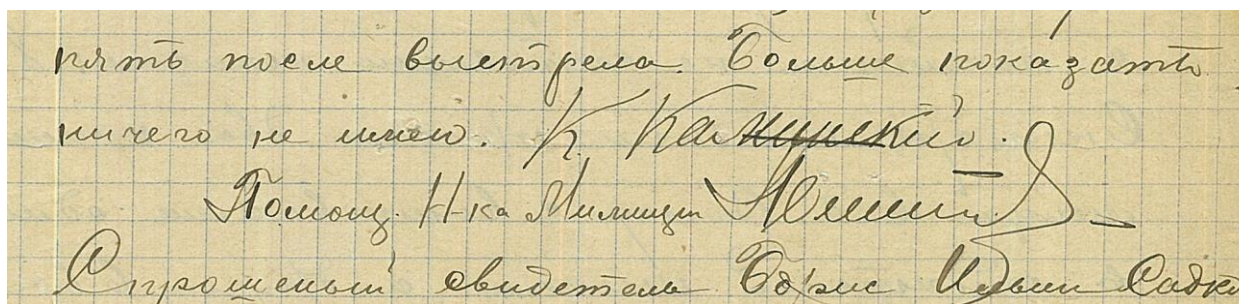 пять после выстрела. Больше показать
ничего не имею. К. Каминский.
Помощ. Н-ка Милиции
Спрошеный свидетель Борис Ильин Садко